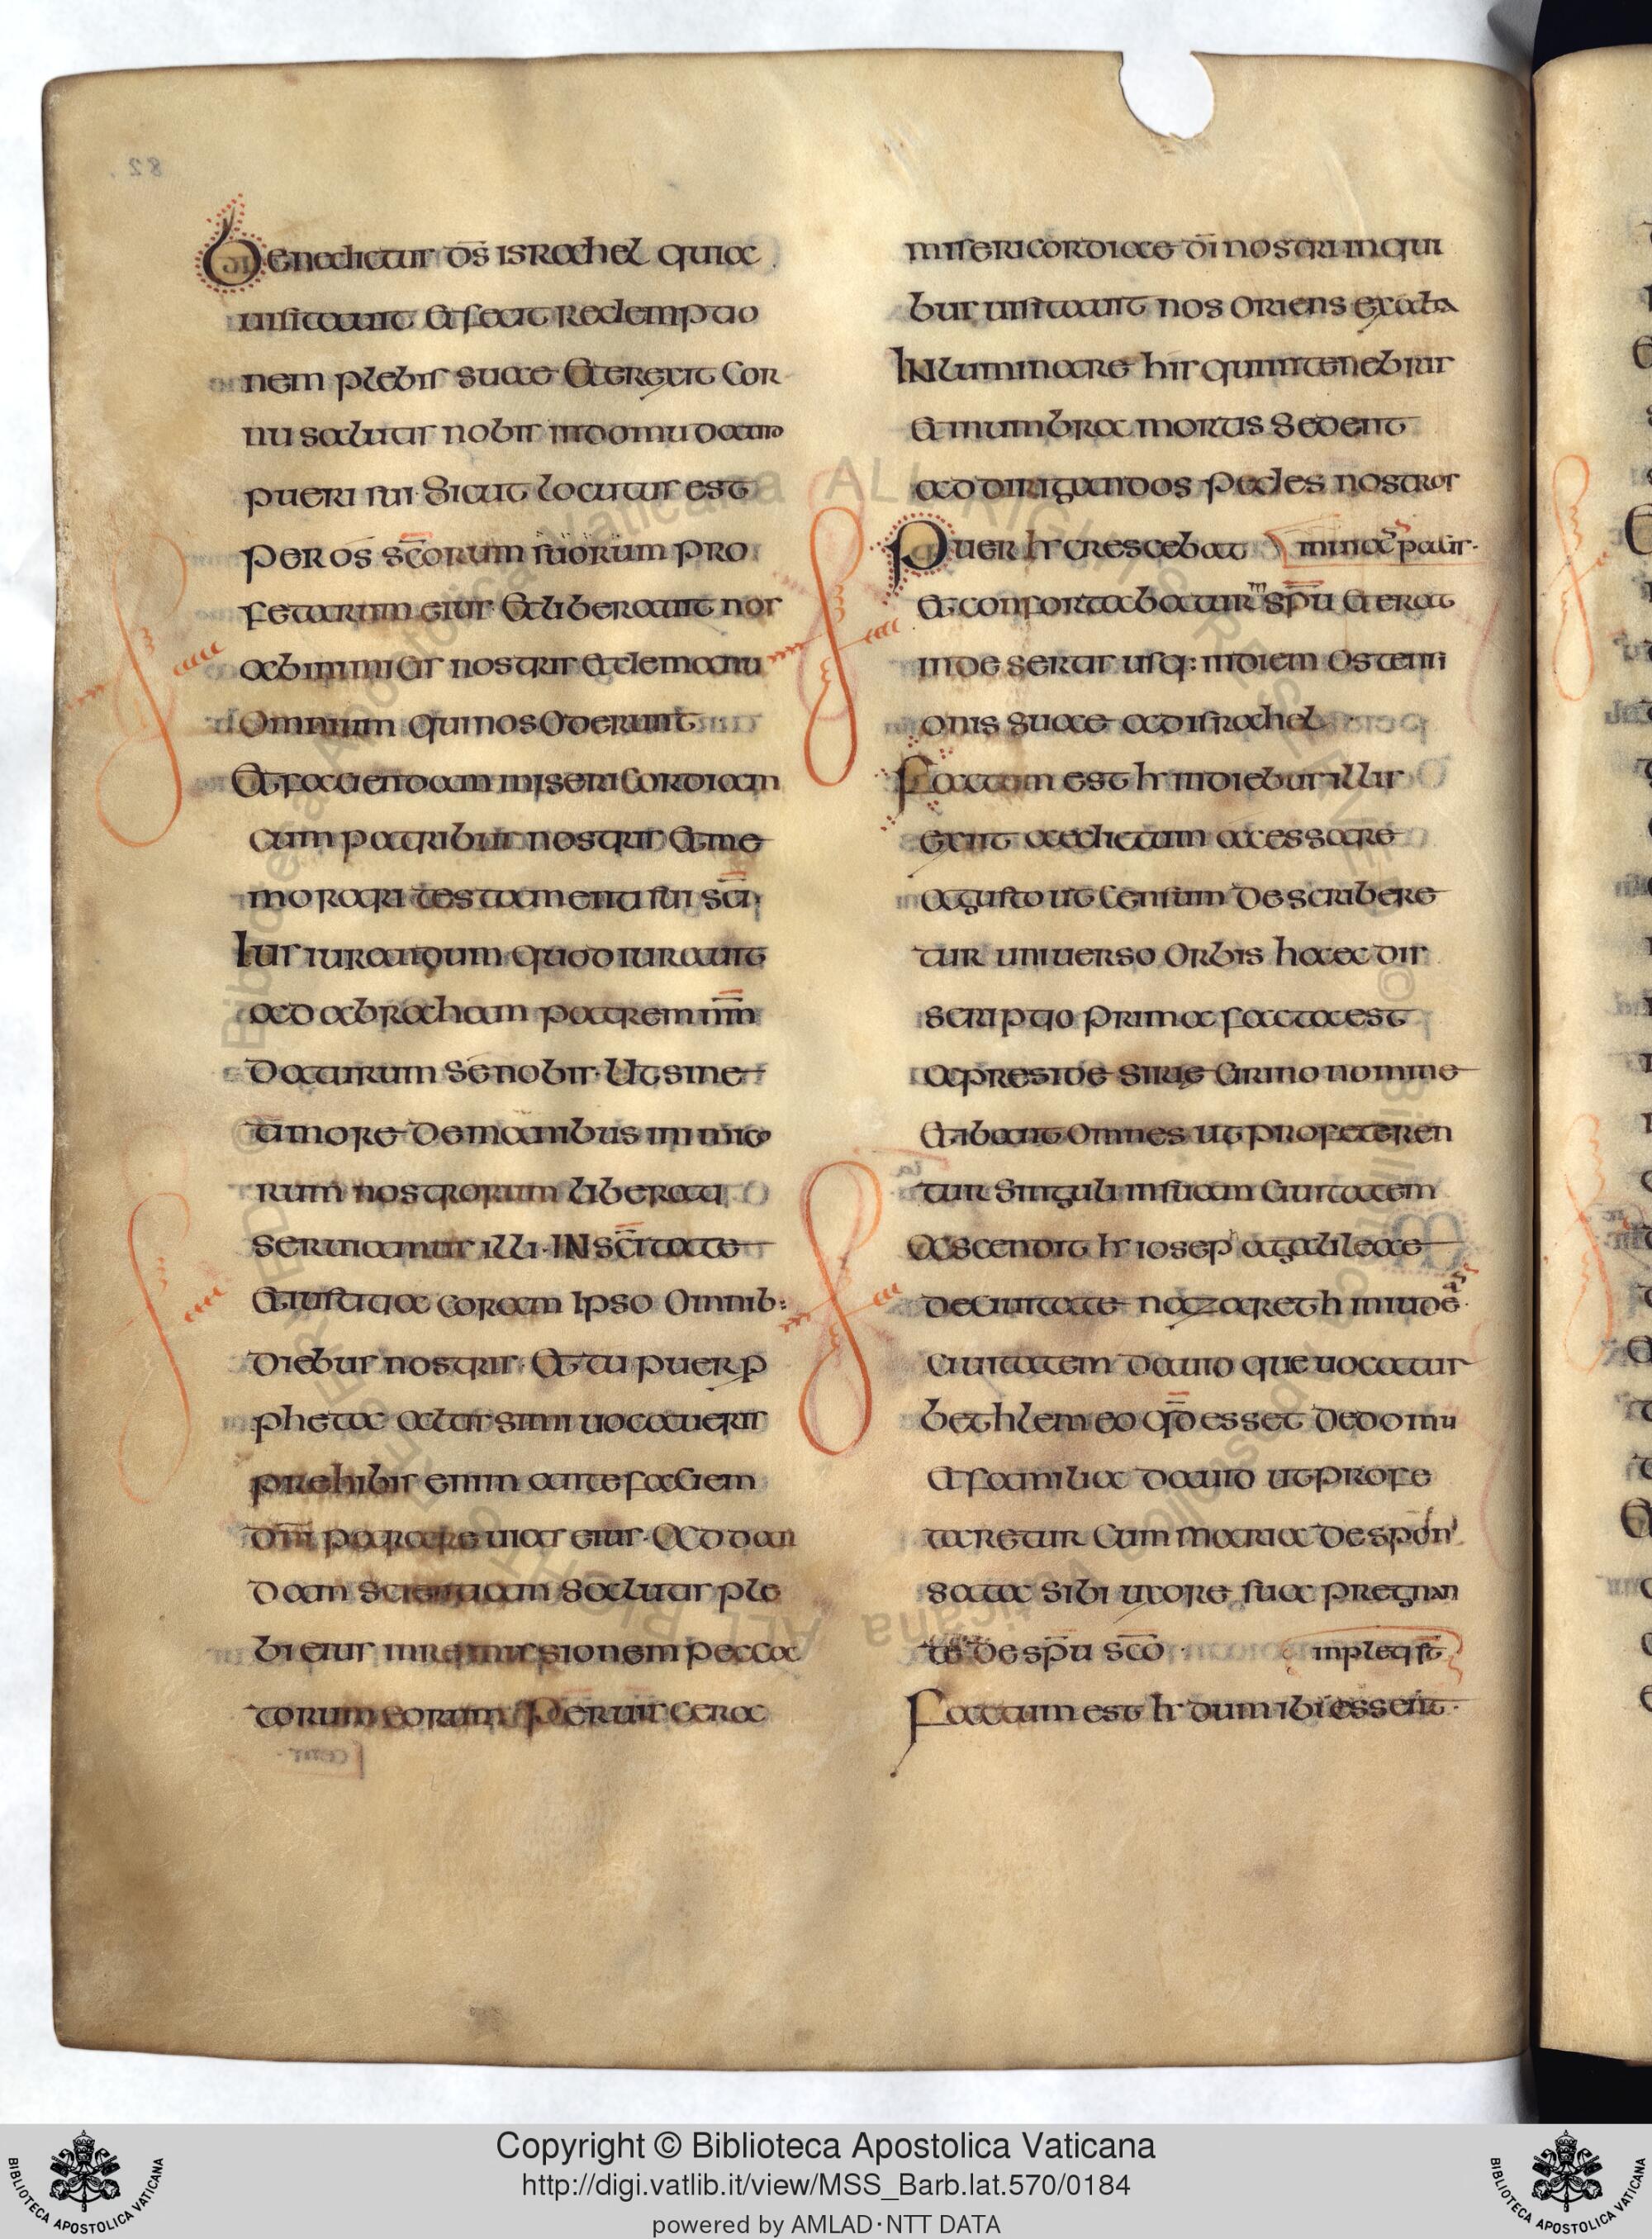 Benedictus d̅s̅ israhel quia
uisitauit et fecit redemptio
nem plebis suae et erexit cor
nu salutis nobis in domu dauid
pueri sui · Sicut locutus est
per os s̅c̅orum suorum pro
fetarum eius · et liberauit nos
ab inimicis nostris et de manu
omnium qui nos oderunt
Et faciendam misericordiam
cum patribus nostris et me
morari testamenti sui s̅c̅i
Ius iurandum quod iurauit
ad abraham patrem n̅m̅
daturum se nobis · Ut sine
timore de manibus inimico
rum nostrorum liberati
seruiamus illi · IN s̅c̅itate
et iustitia coram ipso omnib:
diebus nostris · Et tu puer p
pheta altissimi uocaueris
prehibis enim ante faciem
d̅n̅i parare uias eius · Ad dan
dam scientiam salutis ple
bi eius in remissionem pecca
torum eorum Per uiscera
misericordiae d̅i̅ nostri in qui
bus uisitauit nos oriens ex alta
Inluminare his qui in tenebris
et in umbra mortis sedent
ad dirigandos pedes nostros
Puer hr crescebat
in uia pacis ·
et confortabatur spu̅ et erat
in desertis usq: in diem ostensi
onis suae ad israhel
Factam est hr in diebus illis
exiit aedictum a cessare
agusto ut censum describere
tur uniuerso orbis haec dis
scriptio prima facta est
a preside sirie cirino nomine
et ibant omnes ut profeteren
tur singuli in suam ciuitatem
Ascendit hr iosep a galileae
de ciuitate nazareth in iude
ciuitatem dauid que uocatur
bethlem eo q̅d̅ esset de domu
et familia dauid ut profe
taretur cum maria despon
sata sibi uxore sua pregnan
te de sp̅u s̅c̅o ·
inpleti s̅t̅
Factum est hr dum ibi essent ·
Copyright © Biblioteca Apostolica Vaticana
http://digi.vatlib.it/view/MSS_Barb.lat.570/0184
powered by AMLAD·NTT DATA
BIBLIOTECA APOSTOLICA VATICANA
BIBLIOTECA APOSTOLICA VATICANA